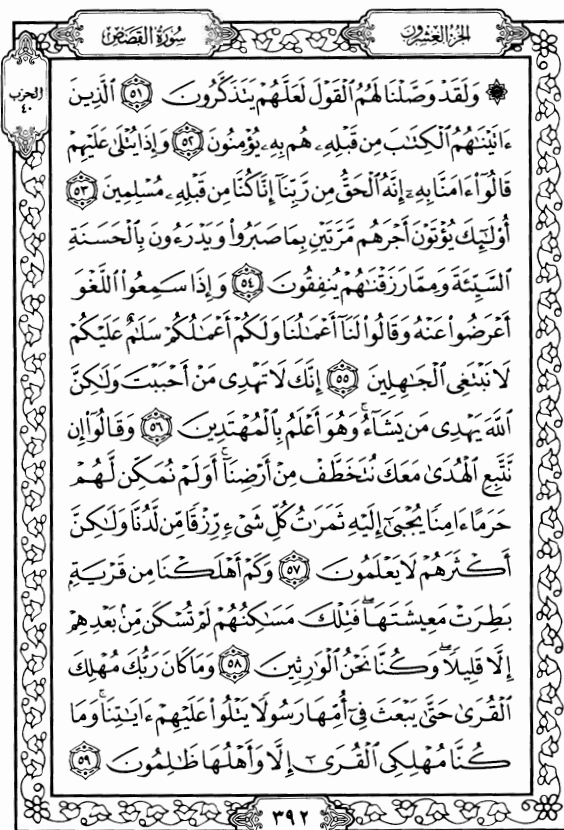 الجزء العشرون
سورة القصص
الحزب
٤٠
۞ وَلَقَدْ وَصَّلْنَا لَهُمُ الْقَوْلَ لَعَلَّهُمْ يَتَذَكَّرُونَ ٥١ الَّذِينَ
ءَاتَيْنَٰهُمُ الْكِتَٰبَ مِن قَبْلِهِۦ هُم بِهِۦ يُؤْمِنُونَ ٥٢ وَإِذَا يُتْلَىٰ عَلَيْهِمْ
قَالُوٓا۟ ءَامَنَّا بِهِۦٓ إِنَّهُ الْحَقُّ مِن رَّبِّنَآ إِنَّا كُنَّا مِن قَبْلِهِۦ مُسْلِمِينَ ٥٣
أُو۟لَٰٓئِكَ يُؤْتَوْنَ أَجْرَهُم مَّرَّتَيْنِ بِمَا صَبَرُوا۟ وَيَدْرَءُونَ بِالْحَسَنَةِ
السَّيِّئَةَ وَمِمَّا رَزَقْنَٰهُمْ يُنفِقُونَ ٥٤ وَإِذَا سَمِعُوا۟ اللَّغْوَ
أَعْرَضُوا۟ عَنْهُ وَقَالُوا۟ لَنَآ أَعْمَٰلُنَا وَلَكُمْ أَعْمَٰلُكُمْ سَلَٰمٌ عَلَيْكُمْ
لَا نَبْتَغِى الْجَٰهِلِينَ ٥٥ إِنَّكَ لَا تَهْدِى مَنْ أَحْبَبْتَ وَلَٰكِنَّ
اللَّهَ يَهْدِى مَن يَشَآءُ ۚ وَهُوَ أَعْلَمُ بِالْمُهْتَدِينَ ٥٦ وَقَالُوٓا۟ إِن
نَّتَّبِعِ الْهُدَىٰ مَعَكَ نُتَخَطَّفْ مِنْ أَرْضِنَآ ۚ أَوَلَمْ نُمَكِّن لَّهُمْ
حَرَمًا ءَامِنًا يُجْبَىٰٓ إِلَيْهِ ثَمَرَٰتُ كُلِّ شَىْءٍ رِّزْقًا مِّن لَّدُنَّا وَلَٰكِنَّ
أَكْثَرَهُمْ لَا يَعْلَمُونَ ٥٧ وَكَمْ أَهْلَكْنَا مِن قَرْيَةٍۭ
بَطِرَتْ مَعِيشَتَهَا ۖ فَتِلْكَ مَسَٰكِنُهُمْ لَمْ تُسْكَن مِّنۢ بَعْدِهِمْ
إِلَّا قَلِيلًا ۖ وَكُنَّا نَحْنُ الْوَٰرِثِينَ ٥٨ وَمَا كَانَ رَبُّكَ مُهْلِكَ
الْقُرَىٰ حَتَّىٰ يَبْعَثَ فِىٓ أُمِّهَا رَسُولًا يَتْلُوا۟ عَلَيْهِمْ ءَايَٰتِنَا ۚ وَمَا
كُنَّا مُهْلِكِى الْقُرَىٰٓ إِلَّا وَأَهْلُهَا ظَٰلِمُونَ ٥٩
٣٩٢